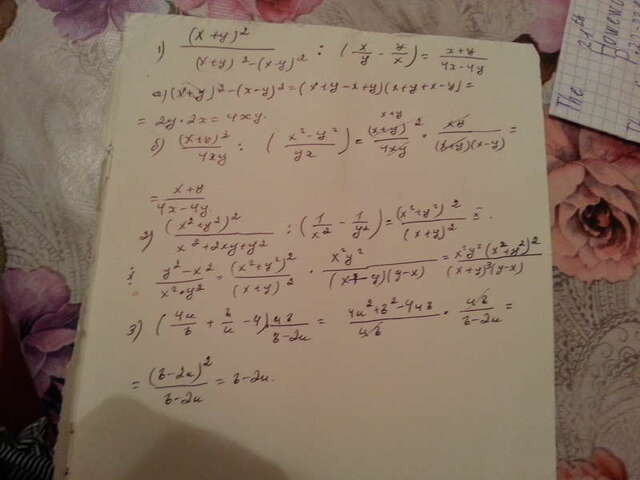 1) (x+y)² / ((x+y)² - (x-y)²) : (x/y - y/x) = (x+y)/(4x-4y)
а) (x+y)² - (x-y)² = (x+y-x+y)(x+y+x-y) =
= 2y·2x = 4xy.
б) (x+y)²/4xy : ((x²-y²)/yx) = (x+y)²/4xy · xy/((x+y)(x-y)) =
= (x+y)/(4x-4y)
2) (x²+y²)²/(x²+2xy+y²) : (1/x² - 1/y²) = (x²+y²)²/(x+y)² :
: (y²-x²)/(x²·y²) = (x²+y²)²/(x+y)² · x²y²/((x+y)(y-x)) = x²y²(x²+y²)²/((x+y)³(y-x))
3) (4u/b + b/u - 4) · ub/(b-2u) = (4u²+b²-4ub)/ub · ub/(b-2u) =
= (b-2u)²/(b-2u) = b-2u.
The 21th
Homew